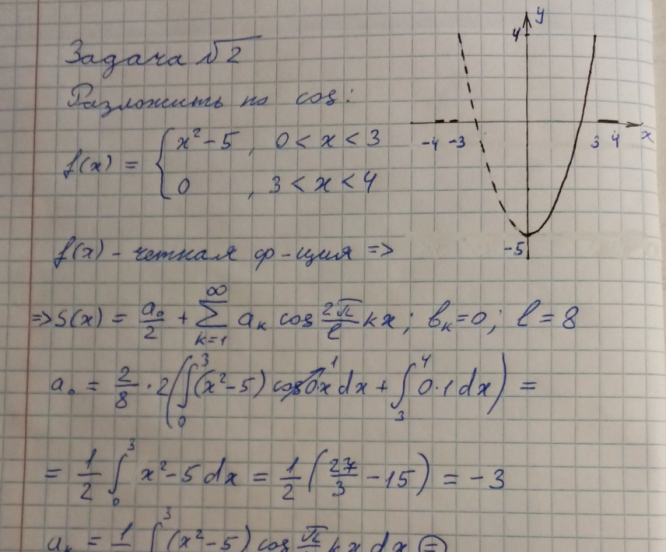 Задача №2
Разложить по cos:
f(x) = { x² - 5 , 0 < x < 3
0 , 3 < x < 4
y
4
-4 -3 3 4 x
-5
f(x) - четная ф-ция =>
=> S(x) = a₀/2 + ∑_{k=1}^{∞} aₖ cos 2π/l kx ; bₖ = 0 ; l = 8
a₀ = 2/8 · 2 (∫₀³ (x² - 5) cos 0x¹ dx + ∫₃⁴ 0·1 dx) =
= 1/2 ∫₀³ x² - 5 dx = 1/2 (27/3 - 15) = -3